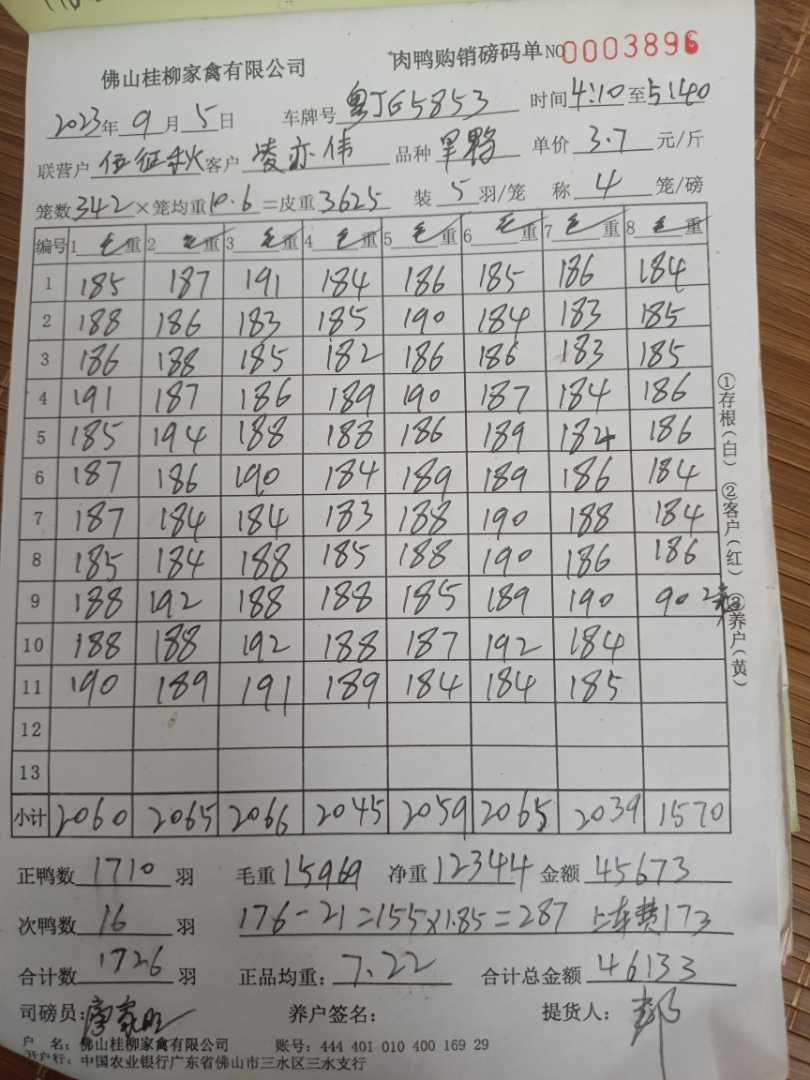 佛山桂柳家禽有限公司 肉鸭购销磅码单 NO 0003896
2023年 9月 5日 车牌号 粤JG5853 时间 4:10 至 5:40
联营户 伍征秋 客户 凌亦伟 品种 单价 3.7 元/斤
笼数 342 ×笼均重 10.6 =皮重 3625 装 5 羽/笼 称 4 笼/磅
编号 1 毛重 2 毛重 3 毛重 4 毛重 5 毛重 6 毛重 7 毛重 8 毛重
1 185 187 191 184 186 185 186 184
2 188 186 183 185 190 184 183 185
3 186 188 185 182 186 186 183 185
4 191 187 186 189 190 187 184 186
5 185 194 188 188 186 189 184 186
6 187 186 190 184 189 189 186 184
7 187 184 184 183 188 190 188 184
8 185 184 188 185 188 190 186 186
9 188 192 188 188 185 189 190 90 2笼
10 188 188 192 188 187 192 184
11 190 189 191 189 184 184 185
12
13
小计 2060 2065 2066 2045 2059 2065 2039 1570
正鸭数 1710 羽 毛重 15969 净重 12344 金额 45673
次鸭数 16 羽 176-21=155×1.85=287 上车费173
合计数 1726 羽 正品均重: 7.22 合计总金额 46133
司磅员: 养户签名: 提货人: 郑
户 名: 佛山桂柳家禽有限公司 账号: 444 401 010 400 169 29
开户行: 中国农业银行广东省佛山市三水区三水支行
①存根(白) ②客户(红) ③养户(黄)